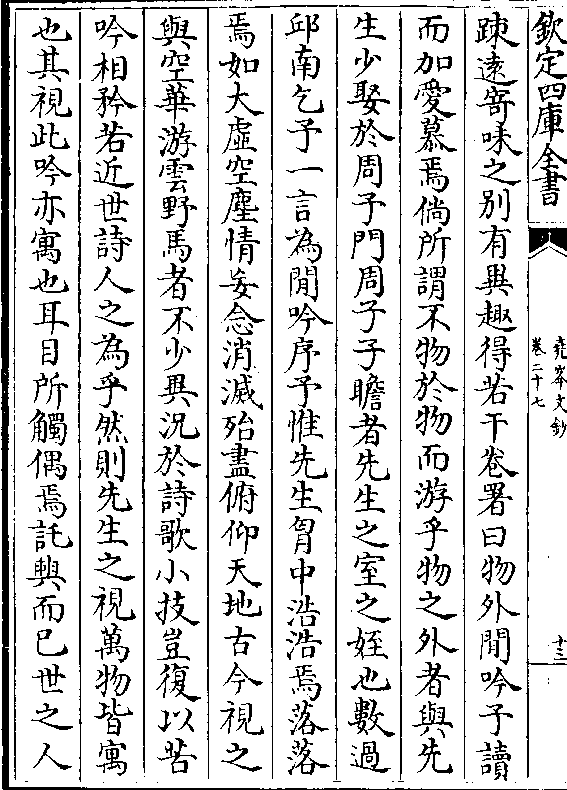 欽定四庫全書
堯峯文鈔
卷二十七
十三
踈遠寄味之别有異趣得若干卷署曰物外閒吟予讀
而加愛慕焉倘所謂不物於物而游乎物之外者與先
生少娶於周予門周子子瞻者先生之室之姪也數過
邱南乞予一言為閒吟序予惟先生胷中浩浩焉落落
焉如大虛空塵情妄念消滅殆盡俯仰天地古今視之
與空華游雲野馬者不少異況於詩歌小技豈復以苦
吟相矜若近世詩人之為乎然則先生之視萬物皆寓
也其視此吟亦寓也耳目所觸偶焉託興而已世之人